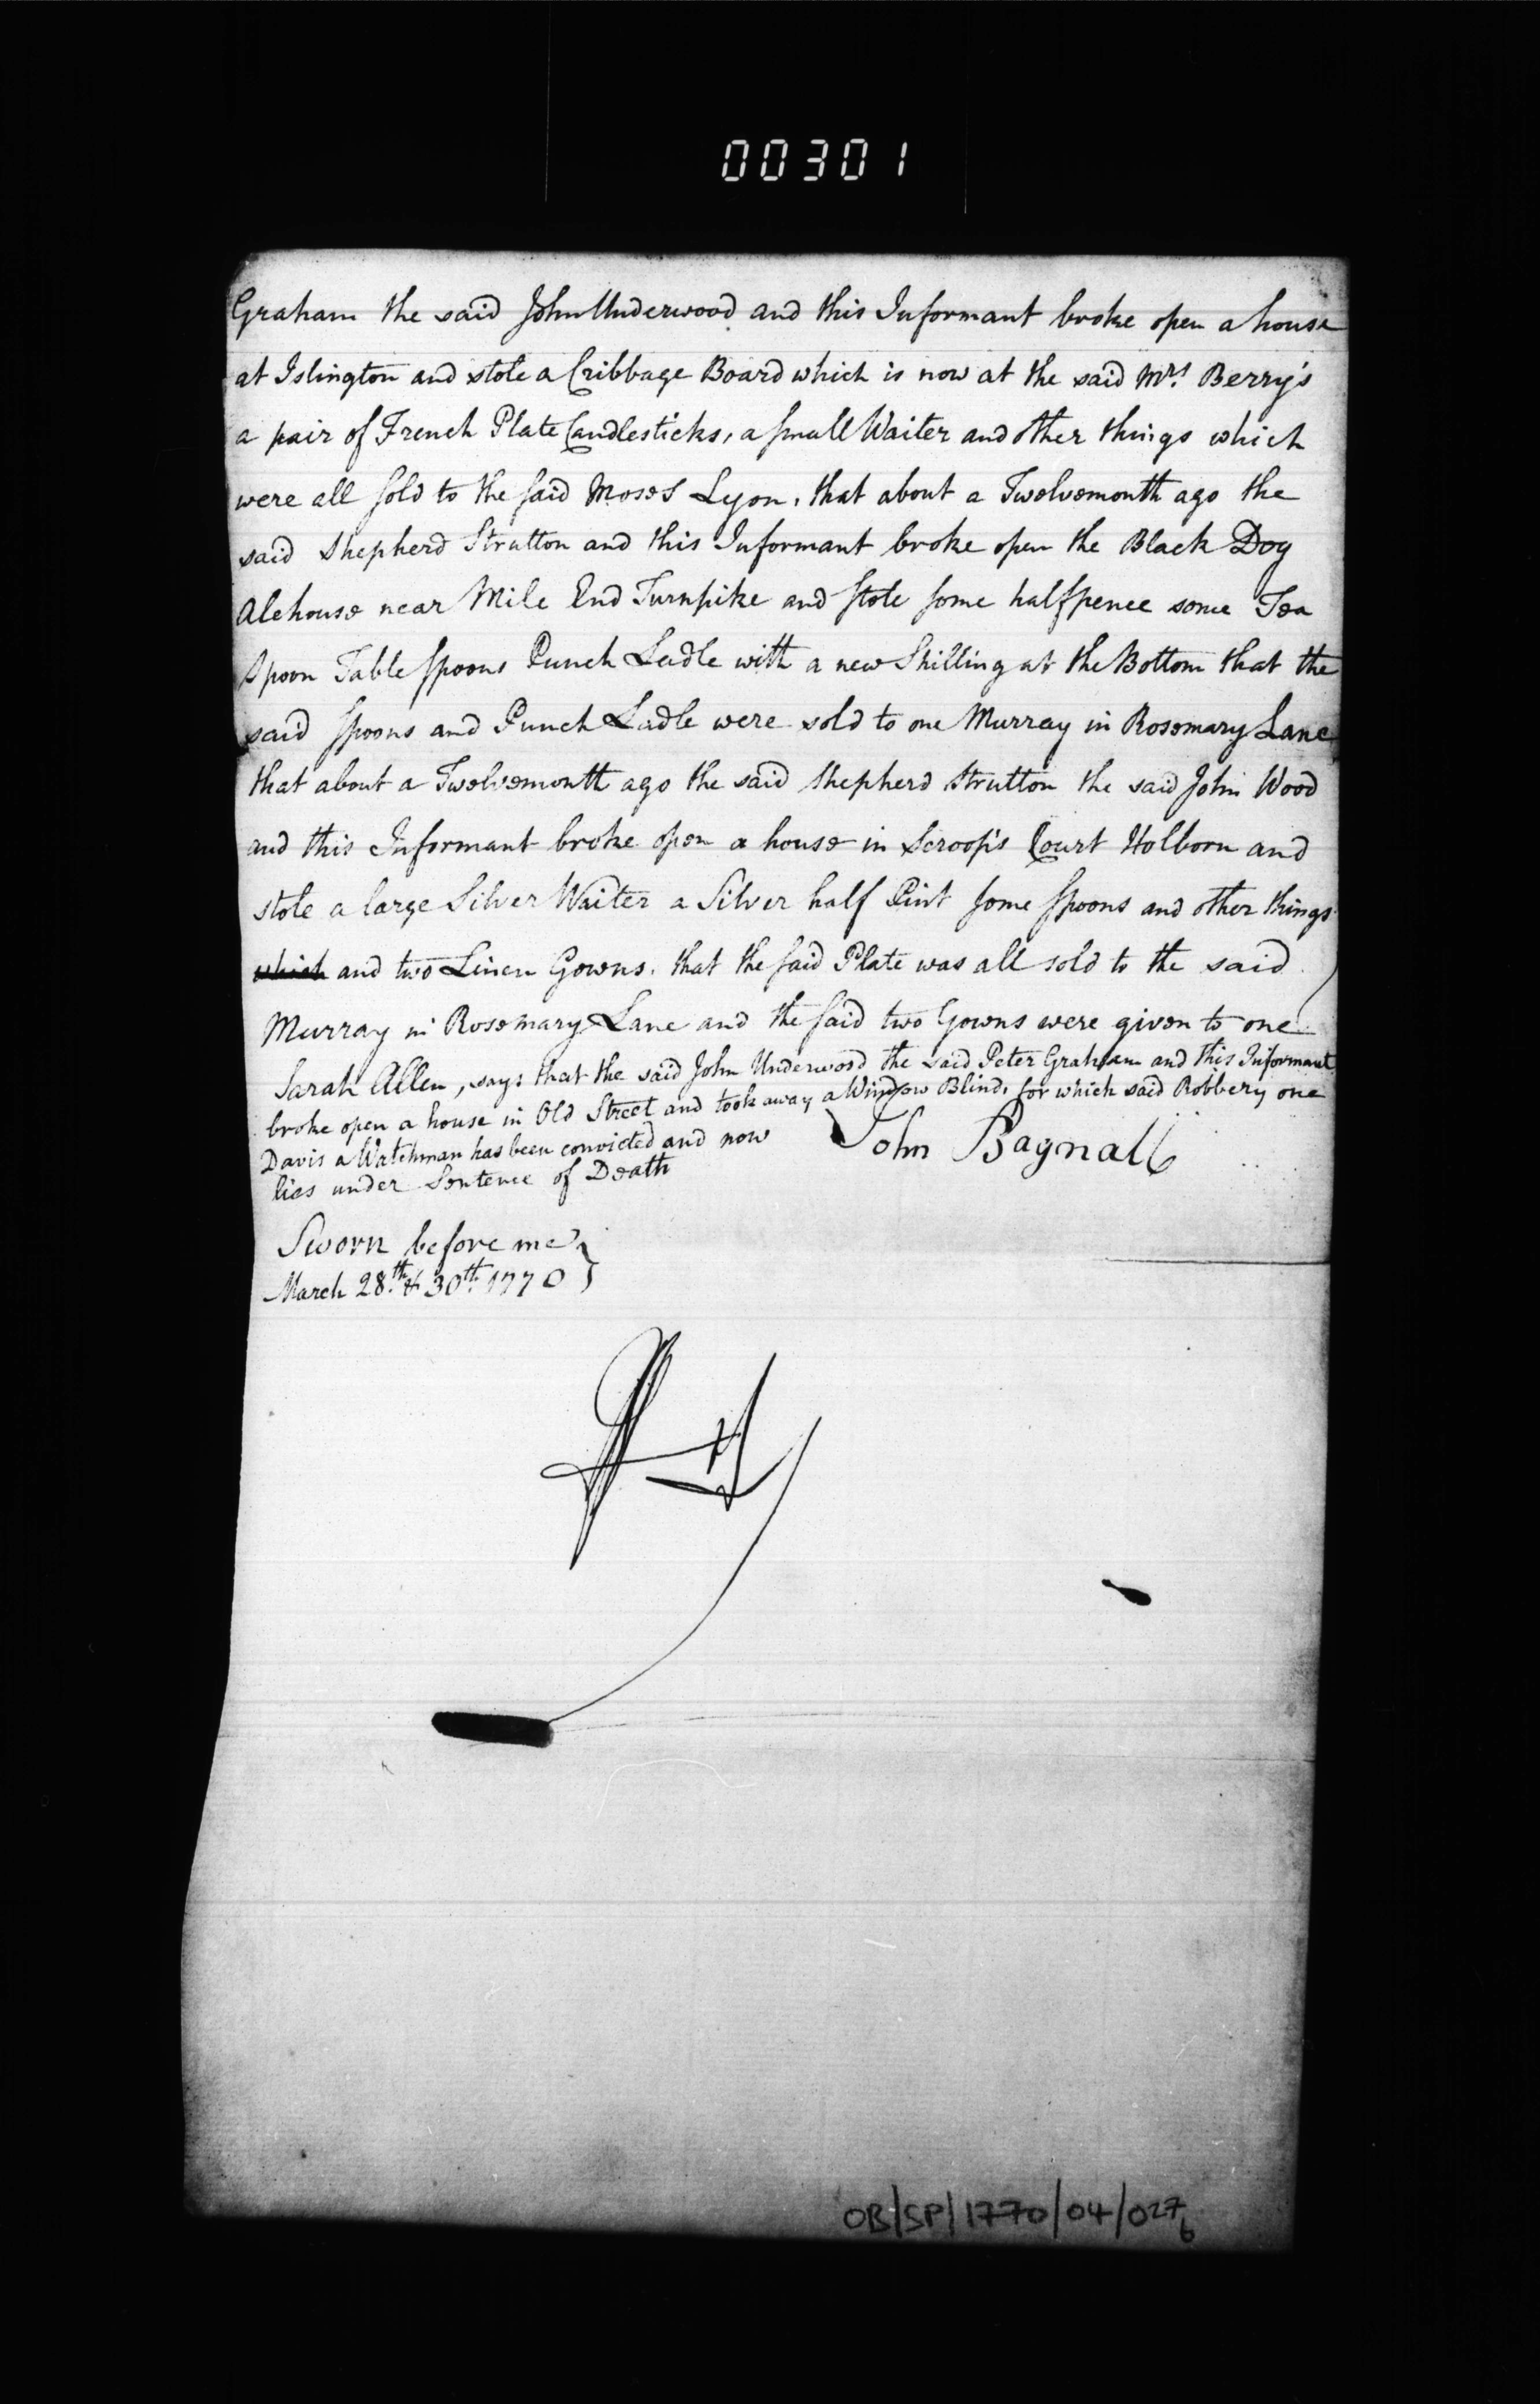 00301
Graham the said John Underwood and this Informant broke open a house
at Islington and stole a Cribbage Board which is now at the said Mrs. Berry's
a pair of French Plate Candlesticks, a small Waiter and other things which
were all sold to the said Moses Lyon, that about a Twelvemonth ago the
said Shepherd Strutton and this Informant broke open the Black Dog
Alehouse near Mile End Turnpike and stole some halfpence some Tea
Spoon Table spoons Punch Ladle with a new Shilling at the Bottom that the
said spoons and Punch Ladle were sold to one Murray in Rosemary Lane
that about a Twelvemonth ago the said Shepherd Strutton the said John Wood
and this Informant broke open a house in Scroop's Court Holborn and
stole a large Silver Waiter a Silver half Pint some spoons and other things
which and two Linen Gowns, that the said Plate was all sold to the said
Murray in Rosemary Lane and the said two Gowns were given to one
Sarah Allen, says that the said John Underwood the said Peter Graham and this Informant
broke open a house in Old Street and took away a Window Blind, for which said Robbery one
Davis a Watchman has been convicted and now
lies under Sentence of Death
John Bagnall
Sworn before me
March 28th. & 30th. 1770
OB/SP/1770/04/027b